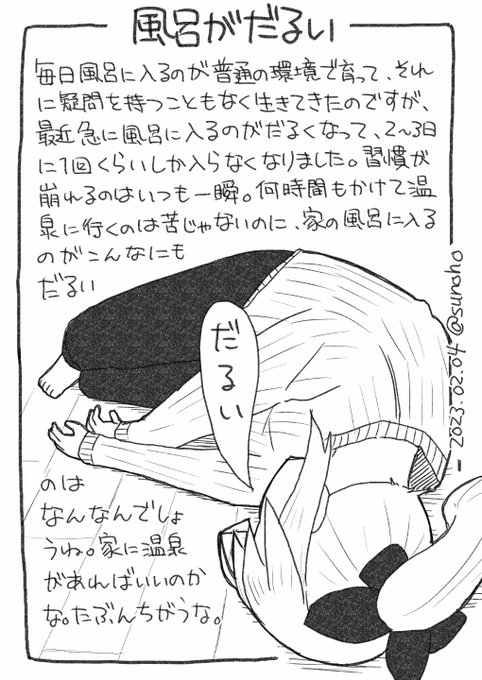 風呂がだるい
毎日風呂に入るのが普通の環境で育って、それ
に疑問を持つこともなく生きてきたのですが、
最近急に風呂に入るのがだるくなって、2~3日
に1回くらいしか入らなくなりました。習慣が
崩れるのはいつも一瞬。何時間もかけて温
泉に行くのは苦じゃないのに、家の風呂に入る
のがこんなにも
だるい
だるい
のは
なんなんでしょ
うね。家に温泉
があればいいのか
な。たぶんちがうな。
2023.02.04 @sunoho